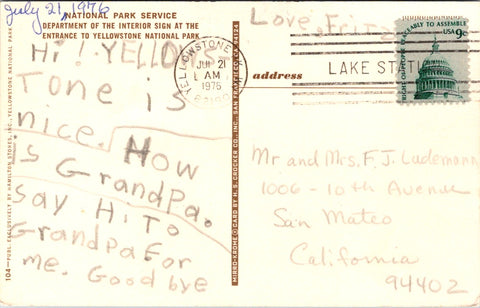 July 21, 1976
NATIONAL PARK SERVICE
DEPARTMENT OF THE INTERIOR SIGN AT THE
ENTRANCE TO YELLOWSTONE NATIONAL PARK
Hi! YELLOW
Tone is
nice. How
is GranDPa.
say. Hi To
GranDpa For
me. Good bye
104—PUBL. EXCLUSIVELY BY HAMILTON STORES, INC., YELLOWSTONE NATIONAL PARK
MIRRO-KROME® CARD BY H. S. CROCKER CO., INC., SAN
Love, Fritz
YELLOWSTONE
21
AM
LAKE
address
RIGHT OF PEOPLE PEACEABLY TO ASSEMBLE
USA 9c
Mr and Mrs. F. J. Ludemann
1006 - 10th Avenue
San Mateo
California
94402